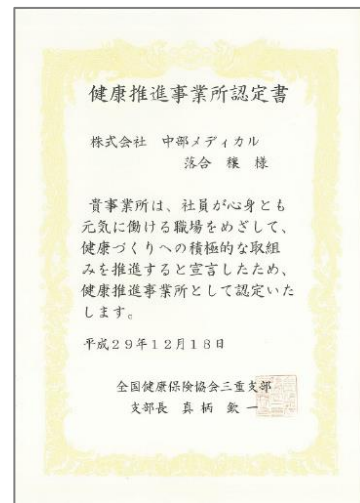 健康推進事業所認定書
株式会社 中部メディカル
落合 穣 様
貴事業所は、社員が心身とも
元気に働ける職場をめざして、
健康づくりへの積極的な取組
みを推進すると宣言したため、
健康推進事業所として認定いた
します。
平成29年12月18日
全国健康保険協会三重支部
支部長 真柄 欽一